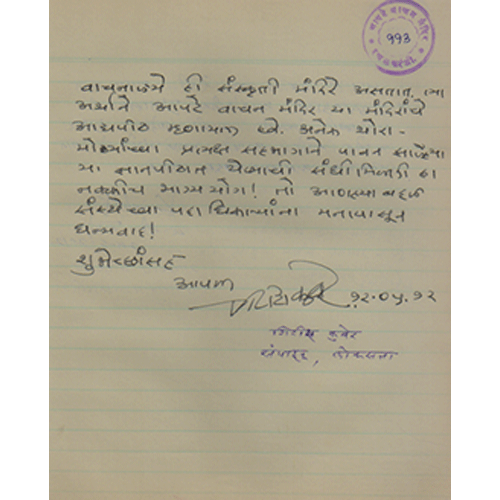 आपटे वाचन मंदिर
११३
इचलकरंजी
वाचनालये ही संस्कृती मंदिरे असतात. त्या
अर्थाने आपटे वाचन मंदिर या मंदिरांचे
आद्यपीठ म्हणायला हवे. अनेक थोरा-
मोठ्यांच्या प्रत्यक्ष सहभागाने पावन झालेल्या
या ज्ञानपीठात येण्याची संधी मिळाली हा
नक्कीच भाग्य योग! तो आणल्याबद्दल
संस्थेच्या पदाधिकाऱ्यांना मनापासून
धन्यवाद!
शुभेच्छांसह
आपला
१२.०५.१२
गिरीश कुबेर
संपादक, लोकसत्ता